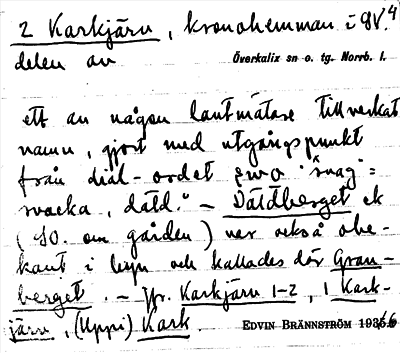 2 Karkjärn, kronohemman i gV. 4
delen av Överkalix sn o. tg. Norrb. l.
ett av någon lantmätare tillverkat
namn, gjort med utgångspunkt
från dial-ordet "svag" =
svacka, däld." – Däldberget ek
(SO. om gården) var också obe-
kant i byn och kallades där Gran-
berget. – Jfr. Karkjärn 1-2, 1 Kark-
järn, (Uppi) Kark. EDVIN BRÄNNSTRÖM 1936